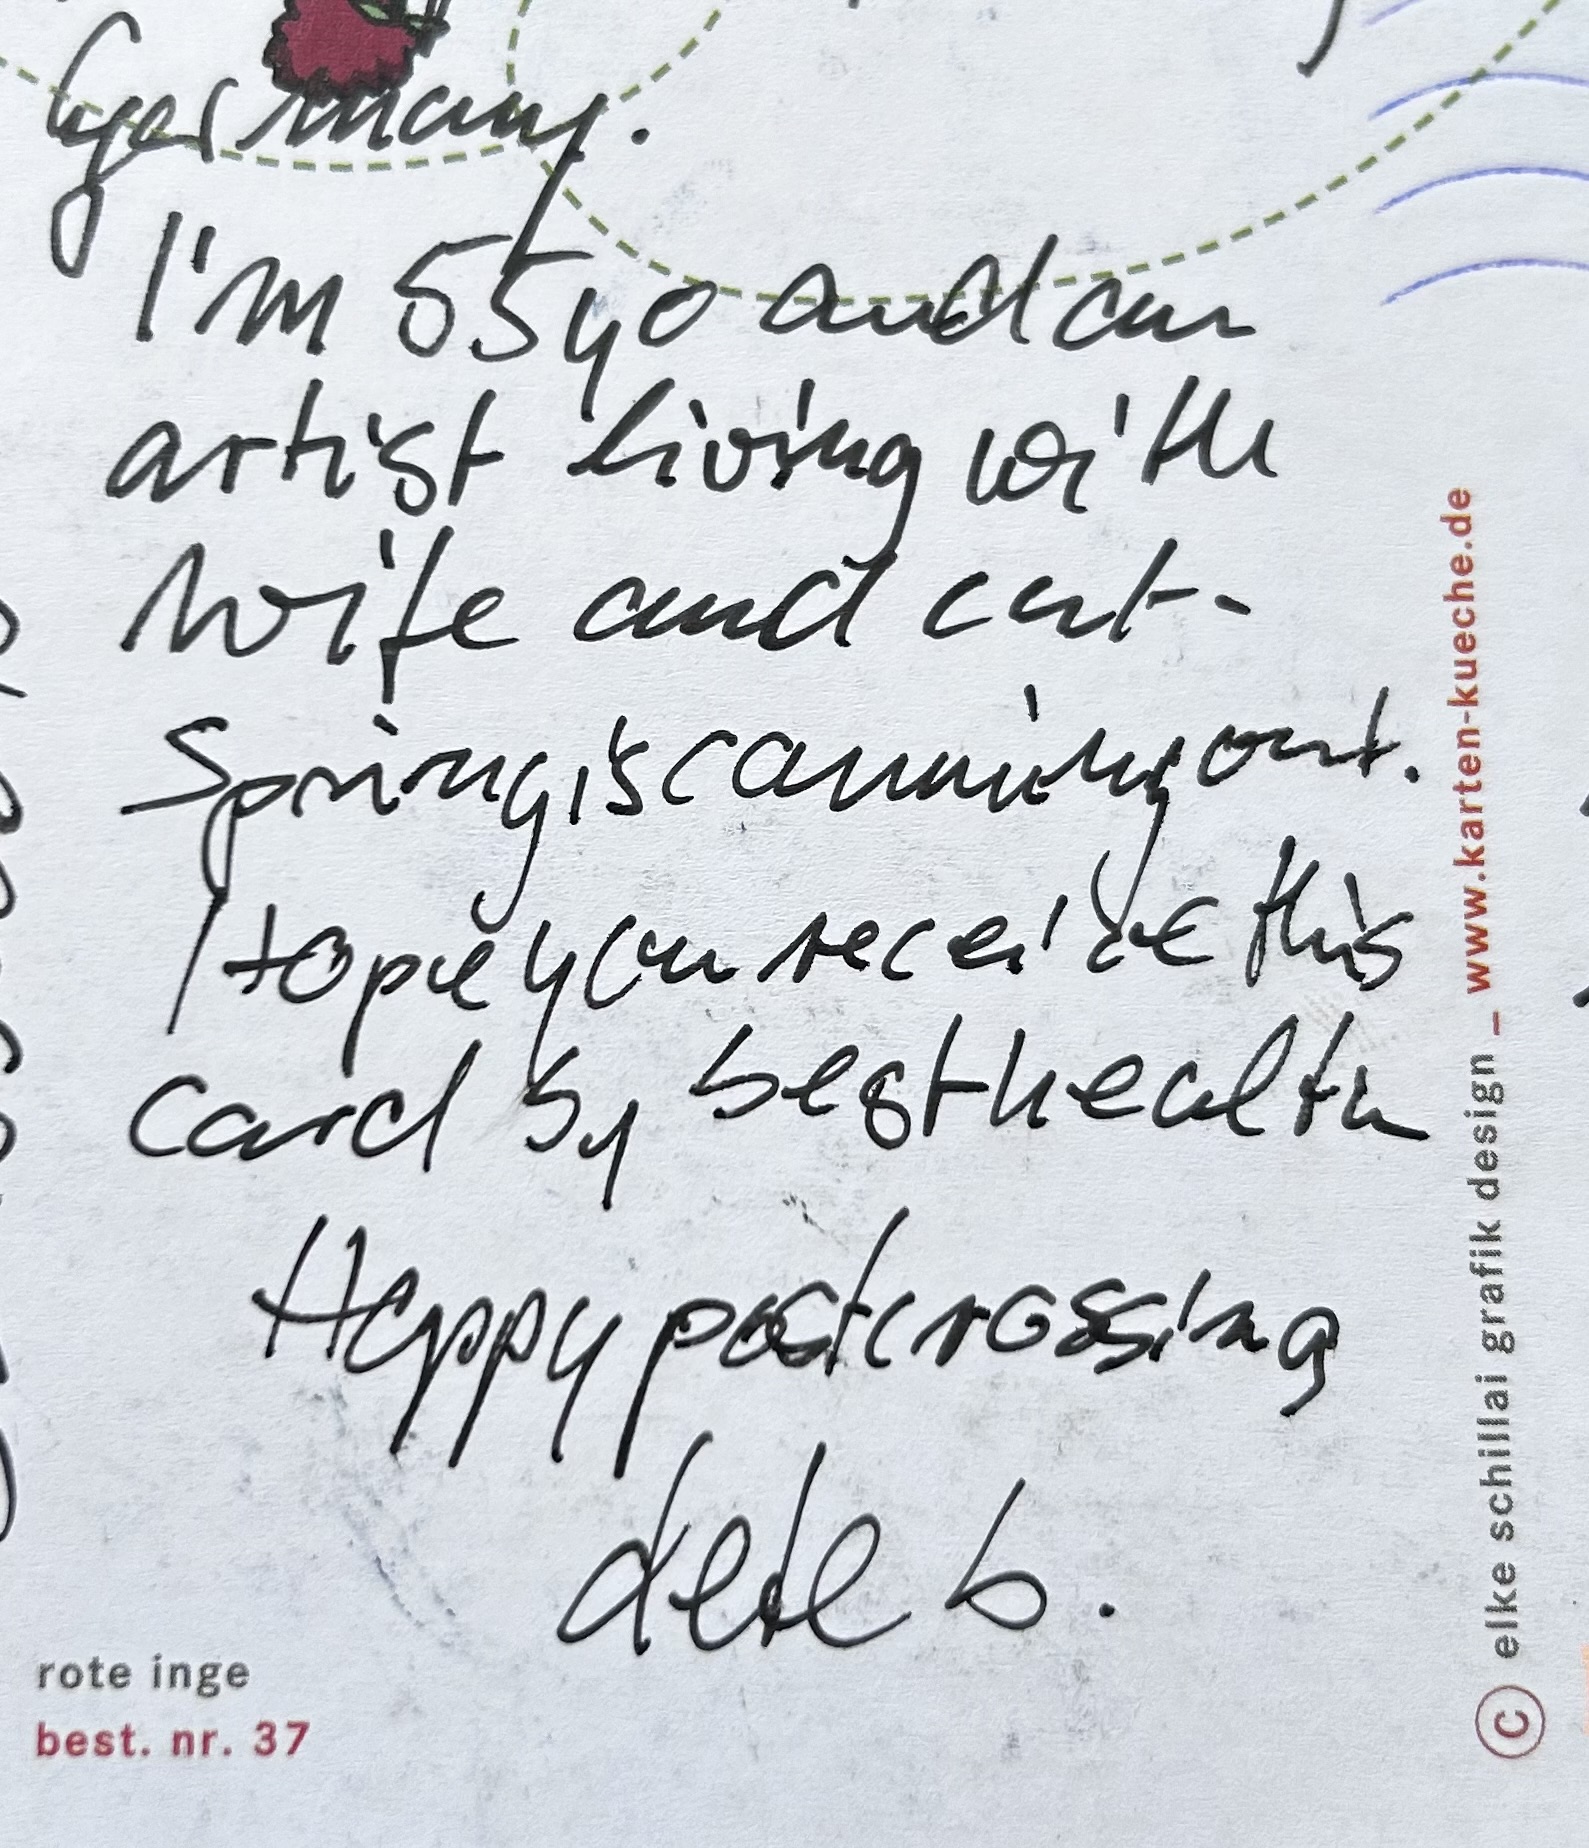 Germany.
I'm 55yo and an
artist living with
wife and cat.
Spring is canning out.
I hope you receive this
card by best health
Happy postcrossing
dete b.
rote inge
best. nr. 37
© elke schillai grafik design _ www.karten-kueche.de